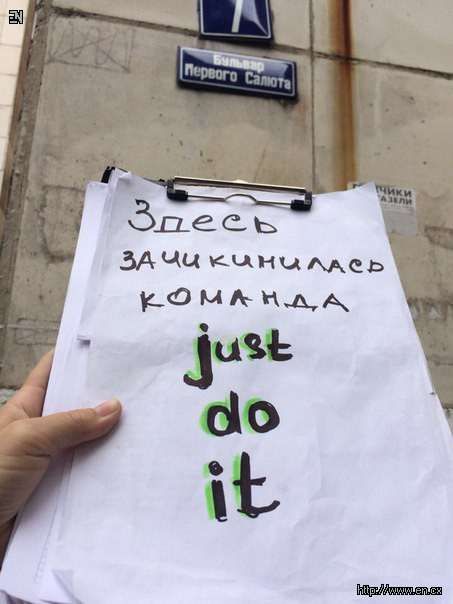 EN
7
Бульвар
Первого Салюта
Здесь
зачикинилась
команда
just
do
it
http://www.en.cx